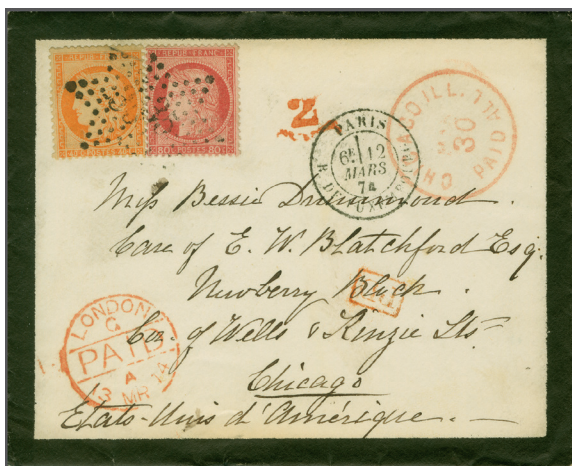 REPUB FRANC
40 POSTES 40
80 POSTES 80
2
PARIS
6E 12
MARS
74
CHICAGO ILL.
30
PAID ALL
Miss Bessie Drummond.
Care of E. W. Blatchford Esq.
Newberry Block.
Cor. of Wells & Kinzie Sts
Chicago
Etats-Unis d'Amérique.
LONDON
G
PAID
A
13 MR 74